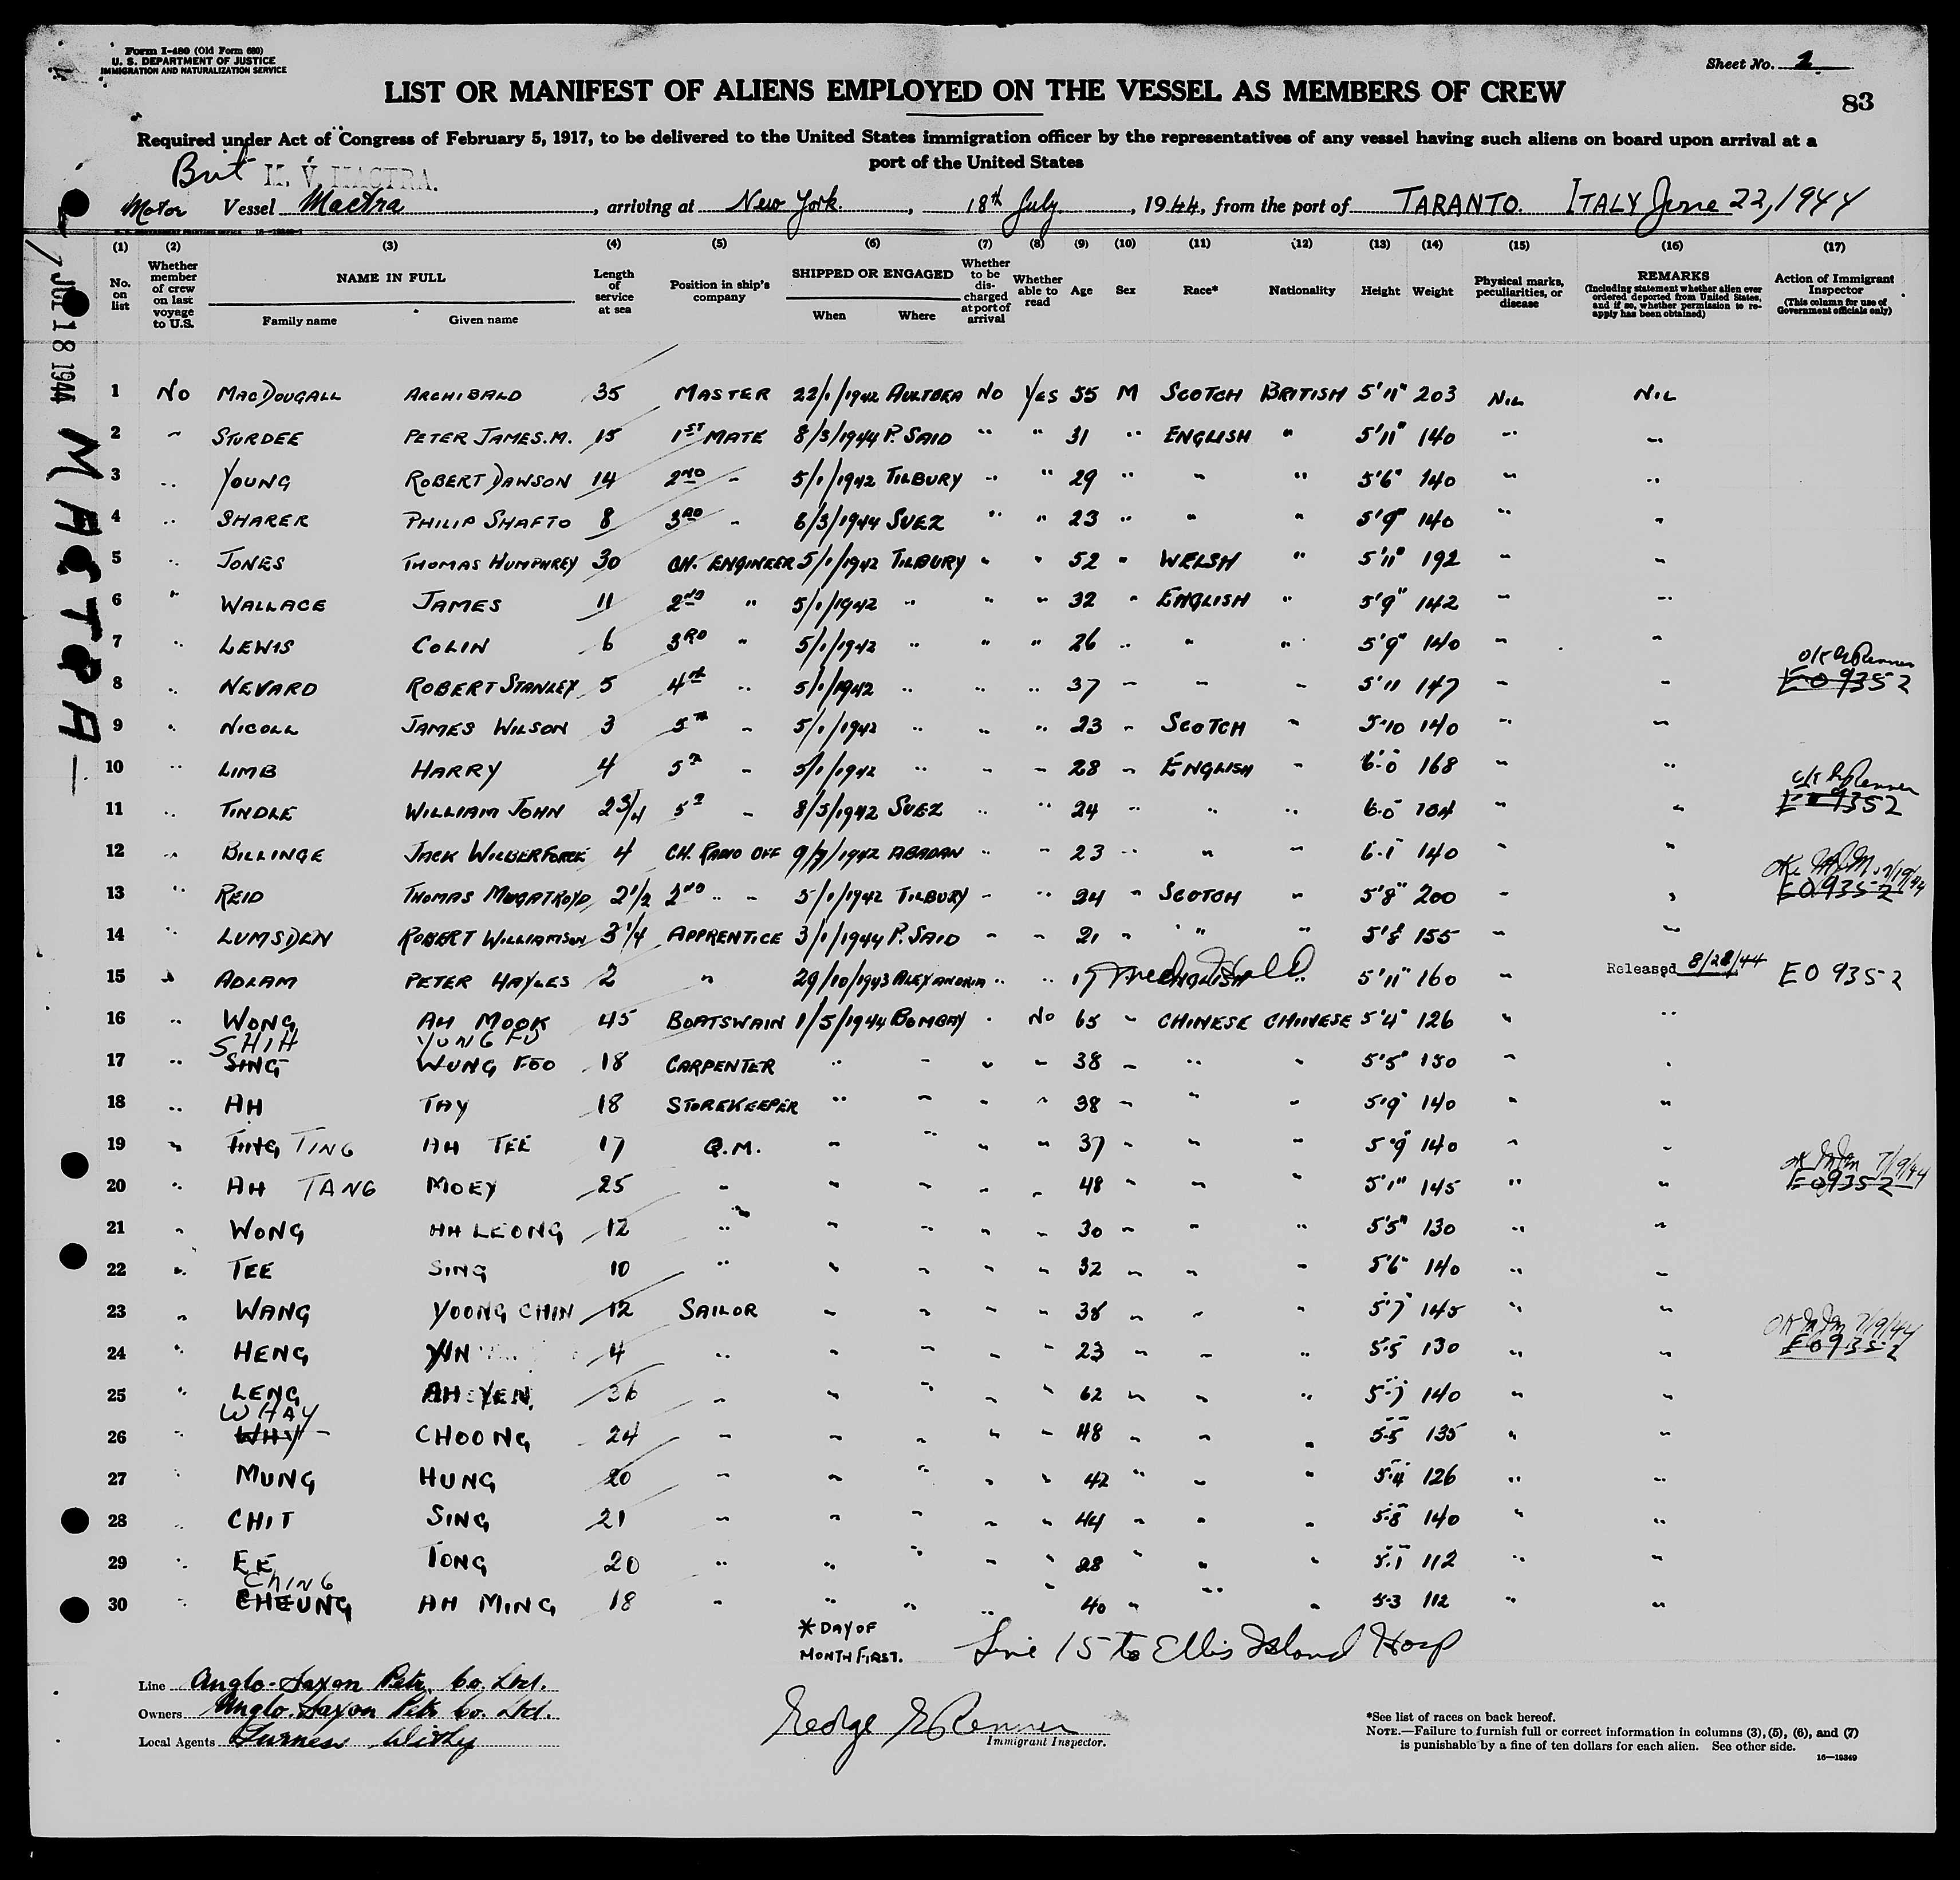 Form I-480 (Old Form 680)
U. S. DEPARTMENT OF JUSTICE
IMMIGRATION AND NATURALIZATION SERVICE
Sheet No. 1
LIST OR MANIFEST OF ALIENS EMPLOYED ON THE VESSEL AS MEMBERS OF CREW
83
Required under Act of Congress of February 5, 1917, to be delivered to the United States immigration officer by the representatives of any vessel having such aliens on board upon arrival at a
port of the United States
Brit M. V. MACTRA.
Motor Vessel Mactra, arriving at New York., 18th July, 1944, from the port of TARANTO. ITALY June 22, 1944
JUL 18 1944
MACTRA
(1) (2) (3) (4) (5) (6) (7) (8) (9) (10) (11) (12) (13) (14) (15) (16) (17)
No. on list
Whether member of crew on last voyage to U.S.
NAME IN FULL
Family name Given name
Length of service at sea
Position in ship's company
SHIPPED OR ENGAGED
When Where
Whether to be discharged at port of arrival
Whether able to read
Age Sex Race* Nationality Height Weight
Physical marks, peculiarities, or disease
REMARKS
(Including statement whether alien ever ordered deported from United States, and if so, whether permission to re-apply has been obtained)
Action of Immigrant Inspector
(This column for use of Government officials only)
1 No MACDOUGALL ARCHIBALD 35 MASTER 22/1/1942 AULTBEA No YES 55 M SCOTCH BRITISH 5'11" 203 NIL NIL
2 " STURDEE PETER JAMES.M. 15 1ST MATE 8/3/1944 P. SAID " " 31 " ENGLISH " 5'11" 140 " "
3 " YOUNG ROBERT DAWSON 14 2ND " 5/1/1942 TILBURY " " 29 " " " 5'6" 140 " "
4 " SHARER PHILIP SHAFTO 8 3RD " 6/3/1944 SUEZ " " 23 " " " 5'9" 140 " "
5 " JONES THOMAS HUMPHREY 30 CH. ENGINEER 5/1/1942 TILBURY " " 52 " WELSH " 5'11" 192 " "
6 " WALLACE JAMES 11 2ND " 5/1/1942 " " " 32 " ENGLISH " 5'9" 142 " "
7 " LEWIS COLIN 6 3RD " 5/1/1942 " " " 26 " " " 5'9" 140 " "
OK Renner
8 " NEVARD ROBERT STANLEY 5 4TH " 5/1/1942 " " " 37 " " " 5'11 147 " " EO 9352
9 " NICOLL JAMES WILSON 3 5TH " 5/1/1942 " " " 23 " SCOTCH " 5'10 140 " "
10 " LIMB HARRY 4 5TH " 5/1/1942 " " " 28 " ENGLISH " 6-0 168 " "
OK Renner
11 " TINDLE WILLIAM JOHN 2 3/4 5 " 8/3/1942 SUEZ " " 24 " " " 6-0 164 " " 9352
12 " BILLINGE JACK WILBERFORCE 4 CH. RADIO OFF 9/9/1942 ABADAN " " 23 " " " 6-1 140 " "
OK 7/19/44
13 " REID THOMAS MUGATROYD 2 1/2 2ND " " 5/1/1942 TILBURY " " 24 " SCOTCH " 5'8" 200 " " EO 9352
14 " LUMSDEN ROBERT WILLIAMSON 3 1/4 APPRENTICE 3/1/1944 P. SAID " " 21 " " " 5'8 155 " "
15 " ADLAM PETER HAYLES 2 " 29/10/1943 ALEXANDRIA " " 19 Med Hold ENGLISH " 5'11" 160 " Released 8/28/44 EO 9352
16 " WONG AH MOOK 45 BOATSWAIN 1/5/1944 BOMBAY " No 65 " CHINESE CHINESE 5'4" 126 " "
SHIH YUNG FU
17 " SING WUNG FOO 18 CARPENTER " " " " 38 " " " 5'5" 130 " "
18 " AH TAY 18 STOREKEEPER " " " " 38 " " " 5'9" 140 " "
19 " TING TING AH TEE 17 Q.M. " " " " 37 " " " 5'9" 140 " "
OK 7/19/44
20 " AH TANG MOEY 25 " " " " " 48 " " " 5'1" 145 " " EO 9352
21 " WONG AH LEONG 12 " " " " " 30 " " " 5'5" 130 " "
22 " TEE SING 10 " " " " " 32 " " " 5'6" 140 " "
23 " WANG YOONG CHIN 12 SAILOR " " " " 38 " " " 5-7 145 " "
OK 7/19/44
24 " HENG YIN 4 " " " " " 23 " " " 5-5 130 " " EO 9352
25 " LENG AH YEN 36 " " " " " 62 " " " 5-7 140 " "
WHAY
26 " WHY CHOONG 24 " " " " " 48 " " " 5-5 135 " "
27 " MUNG HUNG 20 " " " " " 42 " " " 5-4 126 " "
28 " CHIT SING 21 " " " " " 44 " " " 5-8 140 " "
29 " EE TONG 20 " " " " " 28 " " " 5-1 112 " "
CHING
30 " CHEUNG AH MING 18 " " " " " 40 " " " 5-3 112 " "
* DAY OF
MONTH FIRST.
Line 15 to Ellis Island Hosp
Line Anglo-Saxon Petr. Co. Ltd.
Owners Anglo-Saxon Petr. Co. Ltd.
Local Agents Furness Withy
George E Renner
Immigrant Inspector.
*See list of races on back hereof.
NOTE.—Failure to furnish full or correct information in columns (3), (5), (6), and (7)
is punishable by a fine of ten dollars for each alien. See other side.
16—19349